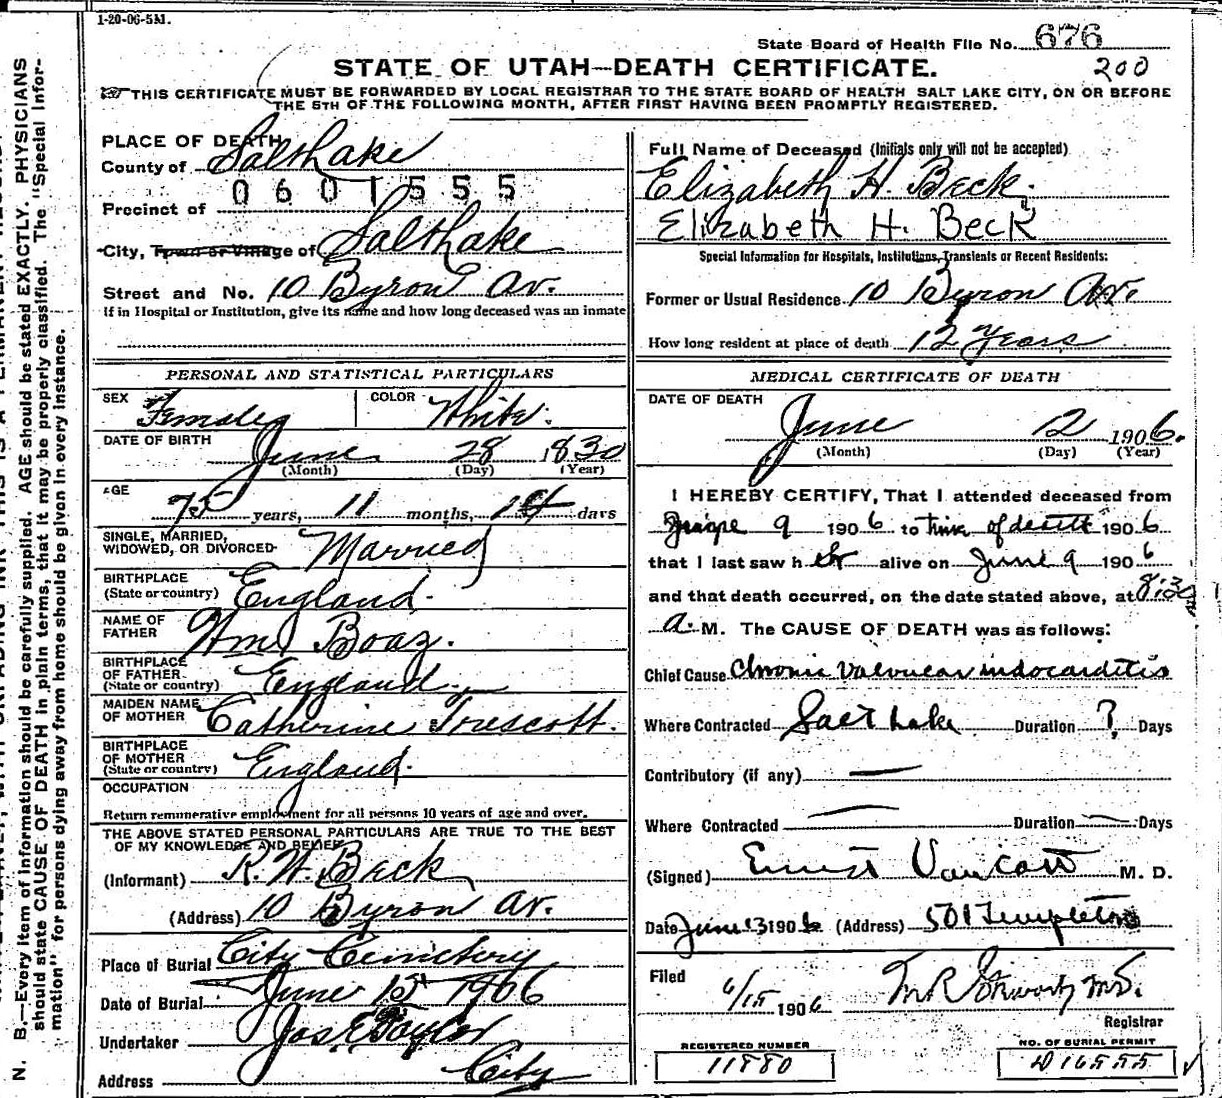 1-20-06-5M.
State Board of Health File No. 676
200
STATE OF UTAH—DEATH CERTIFICATE.
THIS CERTIFICATE MUST BE FORWARDED BY LOCAL REGISTRAR TO THE STATE BOARD OF HEALTH SALT LAKE CITY, ON OR BEFORE
THE 5TH OF THE FOLLOWING MONTH, AFTER FIRST HAVING BEEN PROMPTLY REGISTERED.
PLACE OF DEATH
County of Salt Lake
0601555
Precinct of
City, Town or Village of Salt Lake
Street and No. 10 Byron Av.
If in Hospital or Institution, give its name and how long deceased was an inmate
PERSONAL AND STATISTICAL PARTICULARS
SEX Female COLOR White.
DATE OF BIRTH
June 28 1830
(Month) (Day) (Year)
AGE
75 years, 11 months, days
SINGLE, MARRIED,
WIDOWED, OR DIVORCED Married
BIRTHPLACE
(State or country) England.
NAME OF
FATHER Wm Boaz.
BIRTHPLACE
OF FATHER
(State or country) England.
MAIDEN NAME
OF MOTHER Catherine Trescott.
BIRTHPLACE
OF MOTHER
(State or country) England.
OCCUPATION
Return remunerative employment for all persons 10 years of age and over.
THE ABOVE STATED PERSONAL PARTICULARS ARE TRUE TO THE BEST
OF MY KNOWLEDGE AND BELIEF
(Informant) R. W. Beck
(Address) 10 Byron Av.
Place of Burial City Cemetery
Date of Burial June 15 1906
Undertaker Jos E Taylor
Address City
Full Name of Deceased (Initials only will not be accepted)
Elizabeth H. Beck.
Elizabeth H. Beck
Special Information for Hospitals, Institutions, Transients or Recent Residents:
Former or Usual Residence 10 Byron Av.
How long resident at place of death 12 Years
MEDICAL CERTIFICATE OF DEATH
DATE OF DEATH
June 12 1906.
(Month) (Day) (Year)
I HEREBY CERTIFY, That I attended deceased from
June 9 1906 to time of death 1906
that I last saw her alive on June 9 1906
and that death occurred, on the date stated above, at 8:30
a. M. The CAUSE OF DEATH was as follows:
Chief Cause Chronic Valvular endocarditis
Where Contracted Salt Lake Duration ? Days
Contributory (if any) —
Where Contracted — Duration — Days
(Signed) Ernest Van Cott M. D.
Date June 13 1906 (Address) 501 Templeton
Filed
6/15 1906 M.D.
Registrar
REGISTERED NUMBER
11880
NO. OF BURIAL PERMIT
D 16555
N. B.—Every item of information should be carefully supplied. AGE should be stated EXACTLY. PHYSICIANS
should state CAUSE OF DEATH in plain terms, that it may be properly classified. The "Special Infor-
mation" for persons dying away from home should be given in every instance.